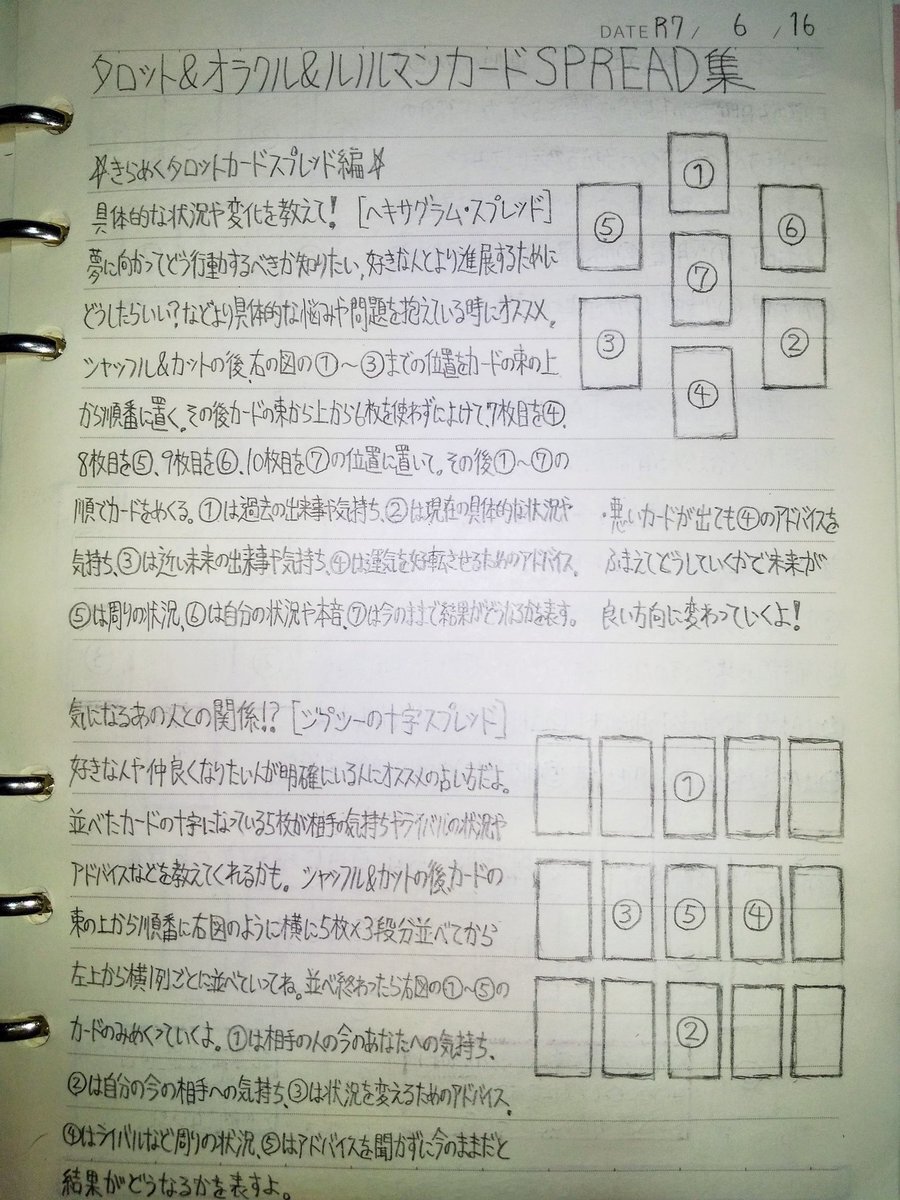 DATE R7/ 6 /16
タロット&オラクル&ルノルマンカードSPREAD集
☆きらめくタロットカードスプレッド編☆
具体的な状況や変化を教えて! [ヘキサグラム・スプレッド]
夢に向かってどう行動するべきか知りたい,好きな人とより進展するために
どうしたらいい?などより具体的な悩みや問題を抱えている時にオススメ。
シャッフル&カットの後、右の図の①〜③までの位置をカードの束の上
から順番に置く。その後カードの束から上から6枚を使わずによけて、7枚目を④、
8枚目を⑤、9枚目を⑥、10枚目を⑦の位置に置いて。その後①〜⑦の
順でカードをめくる。①は過去の出来事や気持ち、②は現在の具体的な状況や
気持ち、③は近い未来の出来事や気持ち、④は運気を好転させるためのアドバイス。
⑤は周りの状況、⑥は自分の状況や本音、⑦は今のままで結果がどうなるかを表す。
①
⑤
⑥
⑦
③
②
④
・悪いカードが出ても④のアドバイスを
ふまえてどうしていくかで未来が
良い方向に変わっていくよ!
気になるあの人との関係!? [ジプシーの十字スプレッド]
好きな人や仲良くなりたい人が明確にいる人にオススメの占い方だよ。
並べたカードの十字になっている5枚が相手の気持ちやライバルの状況や
アドバイスなどを教えてくれるかも。シャッフル&カットの後カードの
束の上から順番に右図のように横に5枚×3段分並べてから
左上から横1列ごとに並べていってね。並べ終わったら右図の①〜⑤の
カードのみめくっていくよ。①は相手の人の今のあなたへの気持ち、
②は自分の今の相手への気持ち、③は状況を変えるためのアドバイス。
④はライバルなど周りの状況、⑤はアドバイスを聞かずに今のままだと
結果がどうなるかを表すよ。
①
③ ⑤ ④
②